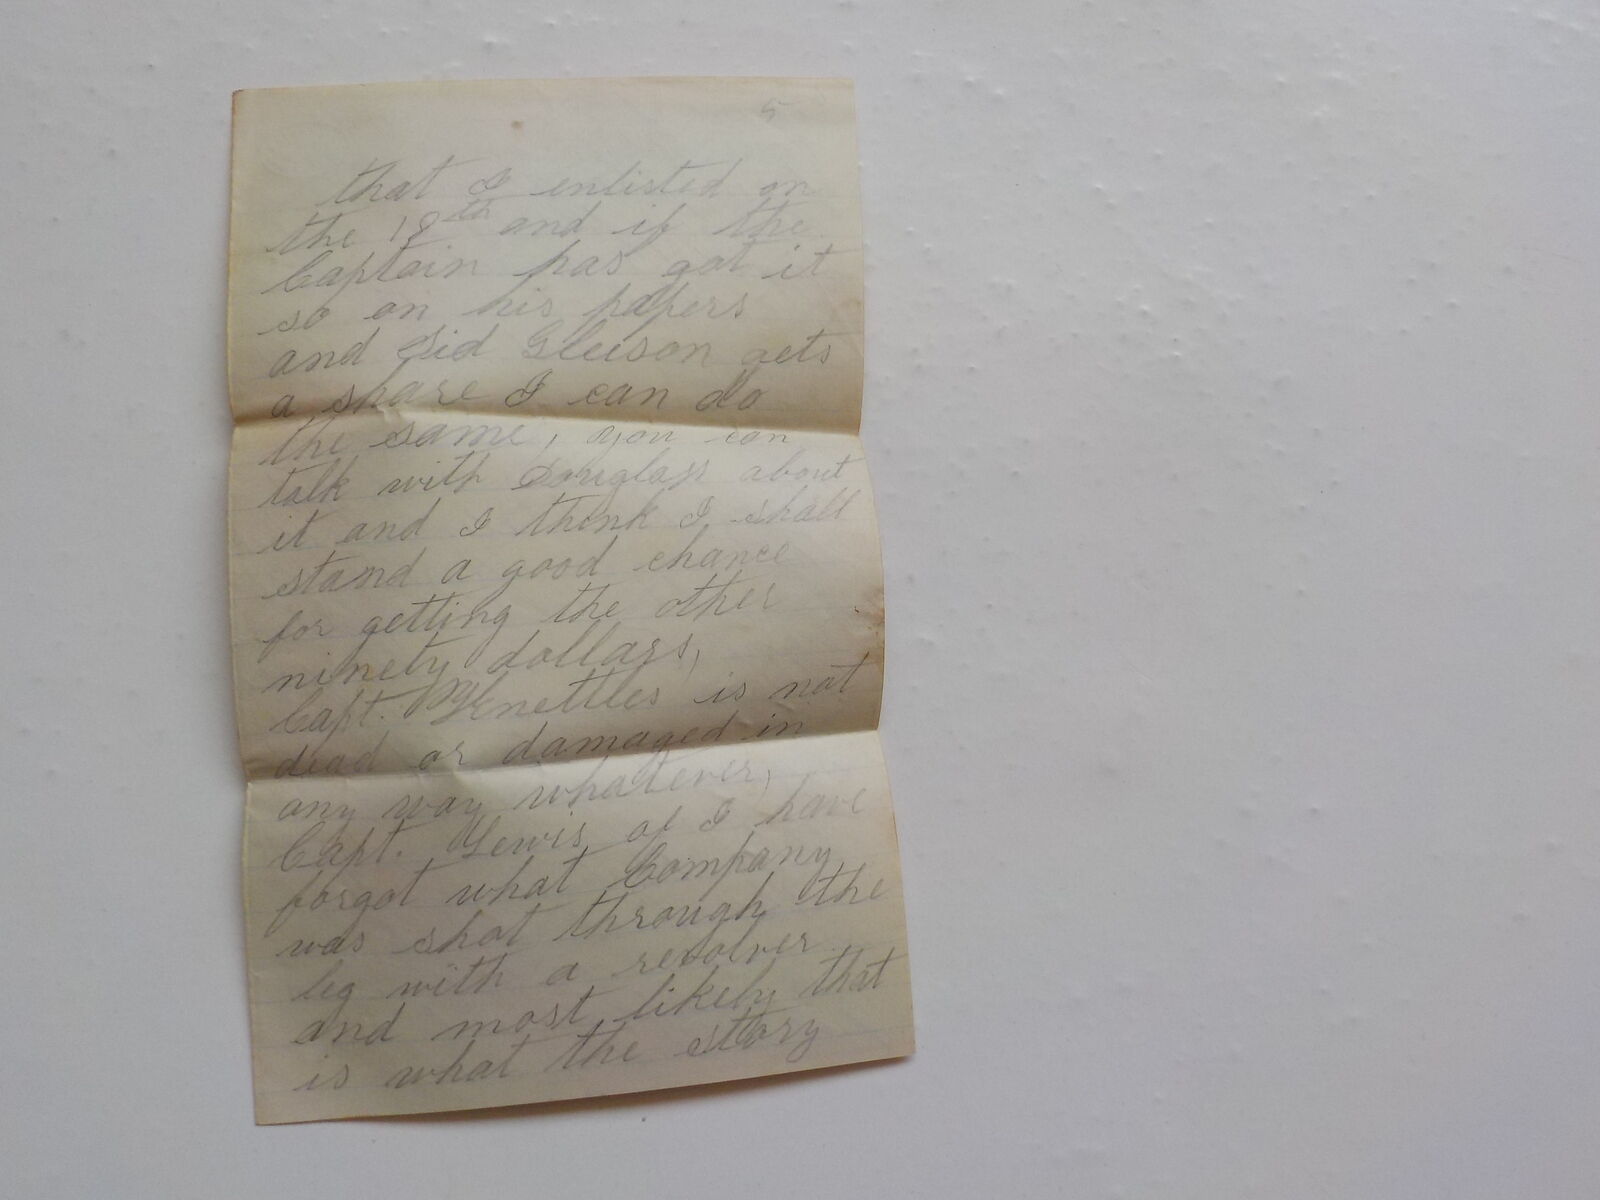 5
that I enlisted on
the 18th and if the
Captain has got it
so on his papers
and Sid Gleison gets
a share I can do
the same, you can
talk with Douglass about
it and I think I shall
stand a good chance
for getting the other
ninety dollars,
Capt. is not
dead or damaged in
any way whatever,
Capt. Lewis of I have
forgot what Company
was shot through the
leg with a revolver
and most likely that
is what the story